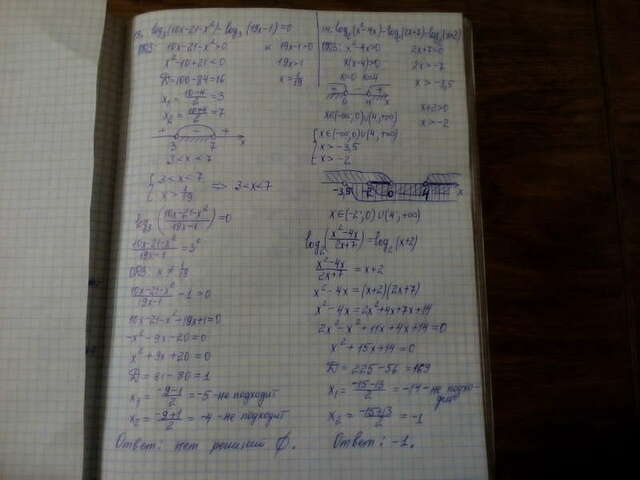 13. log₃(10x-21-x²)-log₃(19x-1)=0
ОДЗ: 10x-21-x²>0 и 19x-1>0
x²-10+21<0 19x>1
D=100-84=16 x=1/19
x₁=(10-4)/2=3
x₂=(10+4)/2=7
+ - +
3 7 x
3<x<7
{3<x<7
{x>1/19 => 3<x<7
log₃((10x-21-x²)/(19x-1))=0
(10x-21-x²)/(19x-1)=3⁰
ОДЗ: x≠1/19
(10x-21-x²)/(19x-1)-1=0
10x-21-x²-19x+1=0
-x²-9x-20=0
x²+9x+20=0
D=81-80=1
x₁=(-9-1)/2=-5-не подходит
x₂=(-9+1)/2=-4-не подходит
Ответ: нет решений ∅.
14. log₂(x²-4x)-log₂(2x+7)=log₂(x+2)
ОДЗ: x²-4x>0 2x+7>0
x(x-4)>0 2x>-7
x=0 x=4 x>-3,5
+ - +
0 4 x x+2>0
x∈(-∞;0)∪(4,+∞) x>-2
{x∈(-∞,0)∪(4,+∞)
{x>-3,5
{x>-2
-3,5 -2 0 4 x
x∈(-2;0)∪(4,+∞)
log₂((x²-4x)/(2x+7))=log₂(x+2)
(x²-4x)/(2x+7)=x+2
x²-4x=(x+2)(2x+7)
x²-4x=2x²+4x+7x+14
2x²-x²+11x+4x+14=0
x²+15x+14=0
D=225-56=169
x₁=(-15-13)/2=-14-не подхо-
дит
x₂=(-15+13)/2=-1
Ответ: -1.